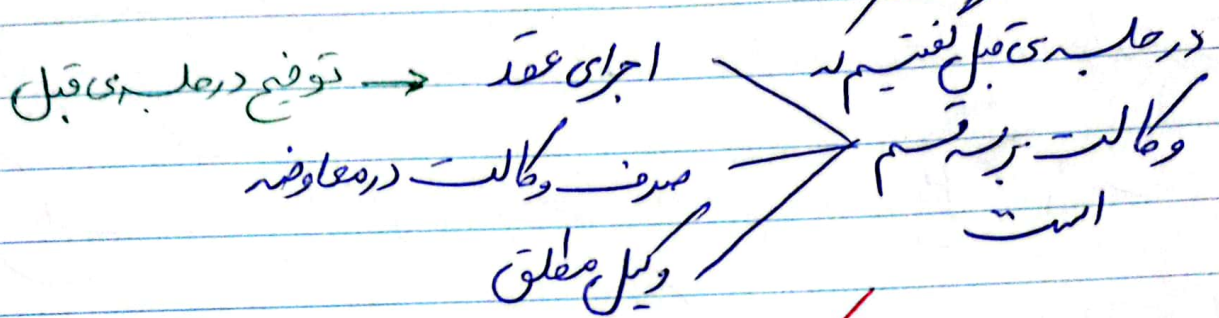 در جلسه‌ی قبل گفتیم که
وکالت بر سه قسم
است
اجرای عقد → توضیح در جلسه‌ی قبل
صرف وکالت در معاوضه
وکیل مطلق